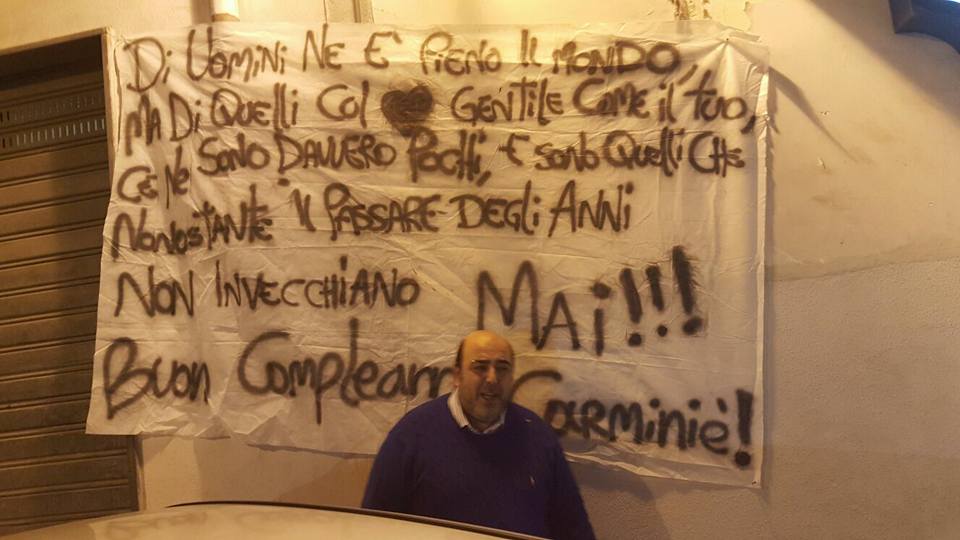 Di UOMiNi NE E' PiENO iL MONDO,
MA Di QUELLi COL GENTiLE COME iL TUO,
CE NE SONO DAVVERO POCHi, E SONO QUELLi CHE
NONOSTANTE iL PASSARE DEGLi ANNi
NON iNVECCHiANO MAi!!!
BUON COMPLEANN CARMiNiè!